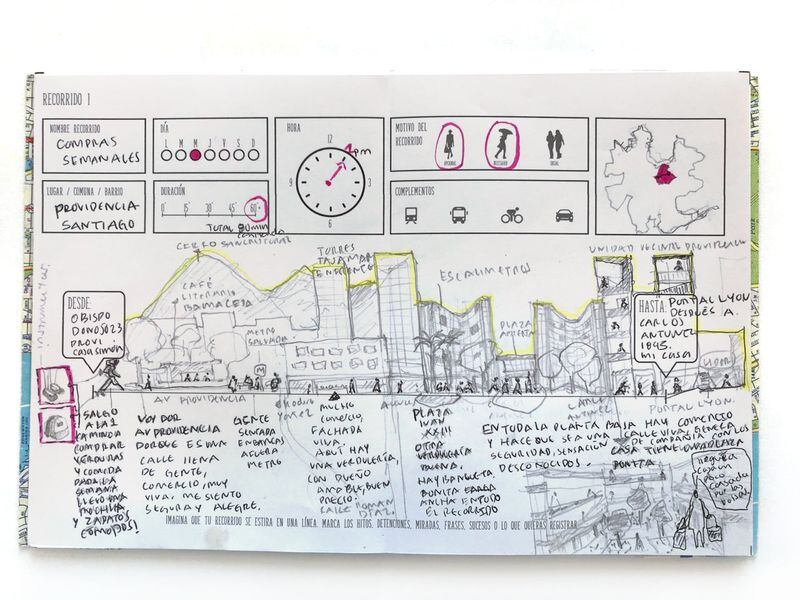 RECORRIDO 1
NOMBRE RECORRIDO
COMPRAS
SEMANALES
DÍA
L M M J V S D
HORA
12
1pm
3
6
9
MOTIVO DEL
RECORRIDO
OPCIONAL
NECESARIO
SOCIAL
LUGAR / COMUNA / BARRIO
PROVIDENCIA
SANTIAGO
DURACIÓN
0' 15' 30' 45' 60'+
TOTAL 80 MIN
COMPLEMENTOS
CERRO SAN CRISTÓBAL
TORRES
TAJAMAR
ESCALIMETROS
UNIDAD VECINAL PROVIDENCIA
CAFÉ
LITERARIO
METRO
SALVADOR
PLAZA
DESDE:
OBISPO
DONOSO 23
PROVI
HASTA: PORTAL LYON
DESPUÉS A.
CARLOS
ANTUNEZ
1895.
MI CASA
AV PROVIDENCIA
PORTAL LYON.
SALGO
A LA 1
CAMINO A
COMPRAR
VERDURAS
Y COMIDA
PARA LA
SEMANA
LLEVO MI
MOCHILA
Y ZAPATOS
CÓMODOS!
VOY POR
AV PROVIDENCIA
PORQUE ES UNA
CALLE LLENA
DE GENTE,
COMERCIO, MUY
VIVA. ME SIENTO
SEGURA Y ALEGRE.
GENTE
SENTADA
EN BANCAS
ACERA
METRO
MUCHO
COMERCIO,
FACHADA
VIVA.
AQUÍ HAY
UNA VERDULERÍA,
CON DUEÑO
AMABLE, BUEN
PRECIO.
CALLE ROMAN
DÍAZ.
PLAZA
JUAN
XXIII
OTRA
VERDULERÍA
BUENA.
HAY BANQUETA
BONITA
ANCHA EN TODO
EL RECORRIDO
EN TODA LA PLANTA BAJA HAY COMERCIO
Y HACE QUE SEA UNA CALLE VIVA, GENERA
SEGURIDAD, SENSACIÓN DE COMPAÑÍA CON LOS
DESCONOCIDOS.
CASA TIENE UNA PLAZA
BONITA
LLEGUÉ A
CASA UN
POCO
CANSADA
POR LAS
BOLSAS
IMAGINA QUE TU RECORRIDO SE ESTIRA EN UNA LÍNEA. MARCA LOS HITOS, DETENCIONES, MIRADAS, FRASES, SUCESOS O LO QUE QUIERAS REGISTRAR